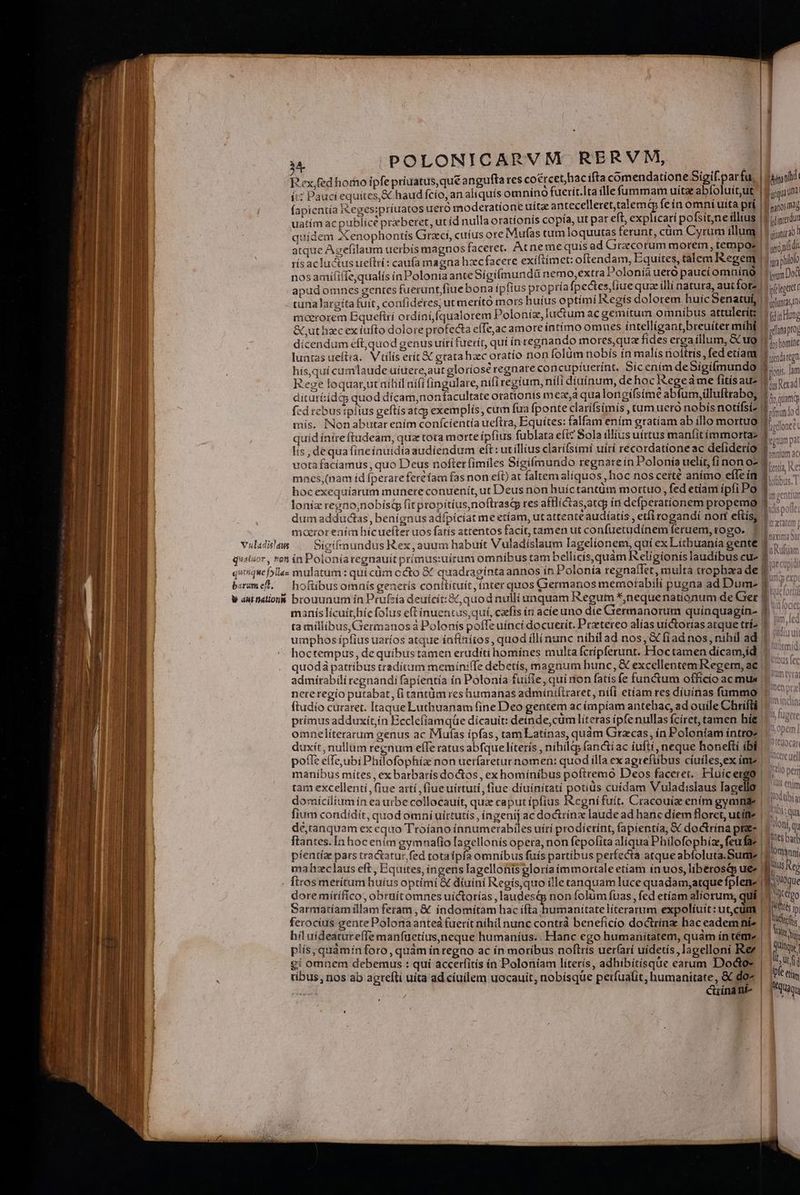 34 POLONICARVM RERVM,
Rex, sed homo ipse priuatus, quē angusta res coërcet, hac ista cōmendatione Sigis. par su-
it: Pauci equites, & haud scio, an aliquis omnino fuerit. Ita ille summam uitæ absoluit, ut
sapientia Reges: priuatos uero moderatione uitæ antecelleret, talemq́; se in omni uita pri
uatim ac publice præberet, ut id nulla orationis copia, ut par est, explicari possit, ne illius
quidem Xenophontis Græci, cuius ore Musas tum loquutas ferunt, cùm Cyrum illum
atque Agesilaum uerbis magnos faceret. At ne me quis ad Græcorum morem, tempo-
ris ac luctus uestri: causa magna hæc facere existimet: ostendam, Equites, talem Regem
nos amisisse, qualis in Polonia ante Sigismundū nemo, extra Poloniā uero pauci omnino
apud omnes gentes fuerunt, siue bona ipsius propria spectes, siue quæ illi natura, aut for-
tuna largita fuit, consideres, ut merito mors huius optimi Regis dolorem huic Senatui,
mœrorem Equestri ordini, squalorem Poloniæ, luctum ac gemitum omnibus attulerit:
&, ut hæc ex iusto dolore profecta esse, ac amore intimo omnes intelligant, breuiter mihi
dicendum est, quod genus uiri fuerit, qui in regnando mores, quæ fides erga illum, & uo
luntas uestra. Vtilis erit & grata hæc oratio non solùm nobis in malis nostris, sed etiam
his, qui cum laude uiuere, aut gloriose regnare concupiuerint. Sic enim de Sigismundo
Rege loquar, ut nihil nisi singulare, nisi regium, nisi diuinum, de hoc Rege à me sitis au-
dituri: idq́; quod dicam, non facultate orationis meæ, à qua longissimè absum, illustrabo,
sed rebus ipsius gestis atq́; exemplis, cum sua sponte clarissimis, tum uero nobis notissi-
mis. Non abutar enim conscientia uestra, Equites: falsam enim gratiam ab illo mortuo
quid inire studeam, quæ tota morte ipsius sublata est? Sola illius uirtus mansit immorta-
lis, de qua sine inuidia audiendum est: ut illius clarissimi uiri recordatione ac desiderio
uota faciamus, quo Deus noster similes Sigismundo regnare in Polonia uelit, si non o-
mnes, (nam id sperare ferè iam fas non est) at saltem aliquos, hoc nos certè animo esse in
hoc exequiarum munere conuenit, ut Deus non huic tantùm mortuo, sed etiam ipsi Po
loniæ regno, nobisq́; sit propitius, nostrasq́; res afflictas, atq́; in desperationem propemo
dum adductas, benignus adspiciat me etiam, ut attente audiatis, etsi rogandi non estis,
mœror enim hic uester uos satis attentos facit, tamen ut consuetudinem seruem, rogo.
Vuladislaus Sigismundus Rex, auum habuit Vuladislaum Iagelionem, qui ex Lithuania gente
quatuor, non in Polonia regnauit primus: uirum omnibus tam bellicis, quàm Religionis laudibus cu-
mulatum: qui cùm octo & quadraginta annos in Polonia regnasset, multa trophæa de
barum est. hostibus omnis generis constituit, inter quos Germanos memorabili pugna ad Dum-
brouunum in Prussia deuicit: &, quod nulli unquam Regum *, neque nationum de Ger
manis licuit, hic solus est inuentus, qui, cæsis in acie uno die Germanorum quinquagin-
ta millibus, Germanos à Polonis posse uinci docuerit. Prætereo alias uictorias atque tri-
umphos ipsius uarios atque infinitos, quod illi nunc nihil ad nos, & si ad nos, nihil ad
hoc tempus, de quibus tamen eruditi homines multa scripserunt. Hoc tamen dicam, id
quod à patribus traditum meminisse debetis, magnum hunc, & excellentem Regem, ac
admirabili regnandi sapientia in Polonia fuisse, qui non satis se functum officio ac mu-
nere regio putabat, si tantùm res humanas administraret, nisi etiam res diuinas summo
studio curaret. Itaque Luthuanam sine Deo gentem ac impiam antehac, ad ouile Christi
primus adduxit, in Ecclesiamq́ue dicauit: deinde, cùm literas ipse nullas sciret, tamen hic
omne literarum genus ac Musas ipsas, tam Latinas, quàm Græcas, in Poloniam intro-
duxit, nullum regnum esse ratus absque literis, nihilq́; sancti ac iusti, neque honesti ibi
posse esse, ubi Philosophiæ non uersaretur nomen: quod illa ex agrestibus ciuiles, ex im-
manibus mites, ex barbaris doctos, ex hominibus postremò Deos faceret. Huic ergo
tam excellenti, siue arti, siue uirtuti, siue diuinitati potiùs cuidam Vuladislaus Iagello
domicilium in ea urbe collocauit, quæ caput ipsius Regni fuit. Cracouiæ enim gymna-
sium condidit, quod omni uirtutis, ingenij ac doctrinæ laude ad hanc diem floret, ut in-
de, tanquam ex equo Troiano innumerabiles uiri prodierint, sapientia, & doctrina præ-
stantes. In hoc enim gymnasio Iagellonis opera, non seposita aliqua Philosophiæ, seu sa-
pientiæ pars tractatur, sed tota ipsa omnibus suis partibus perfecta atque absoluta. Sum-
ma hæc laus est, Equites, ingens Iagellonis gloria immortale etiam in uos, liberosq́; ue-
stros meritum huius optimi & diuini Regis, quo ille tanquam luce quadam, atque splen-
dore mirifico, obruit omnes uictorias, laudesq́; non solùm suas, sed etiam aliorum, qui
Sarmatiam illam feram, & indomitam hac ista humanitate literarum expoliuit: ut, cùm
ferocius gente Polona anteà fuerit nihil nunc contrà beneficio doctrinæ hac eadem ni-
hil uideatur esse mansuetius, neque humanius. Hanc ego humanitatem, quàm in tem-
plis, quàm in foro, quàm in regno ac in moribus nostris uersari uidetis, Iagelloni Re-
gi omnem debemus: qui accersitis in Poloniam literis, adhibitisq́ue earum Docto-
ribus, nos ab agresti uita ad ciuilem uocauit, nobisq́ue persuasit, humanitate, & do-
ctrina ni-